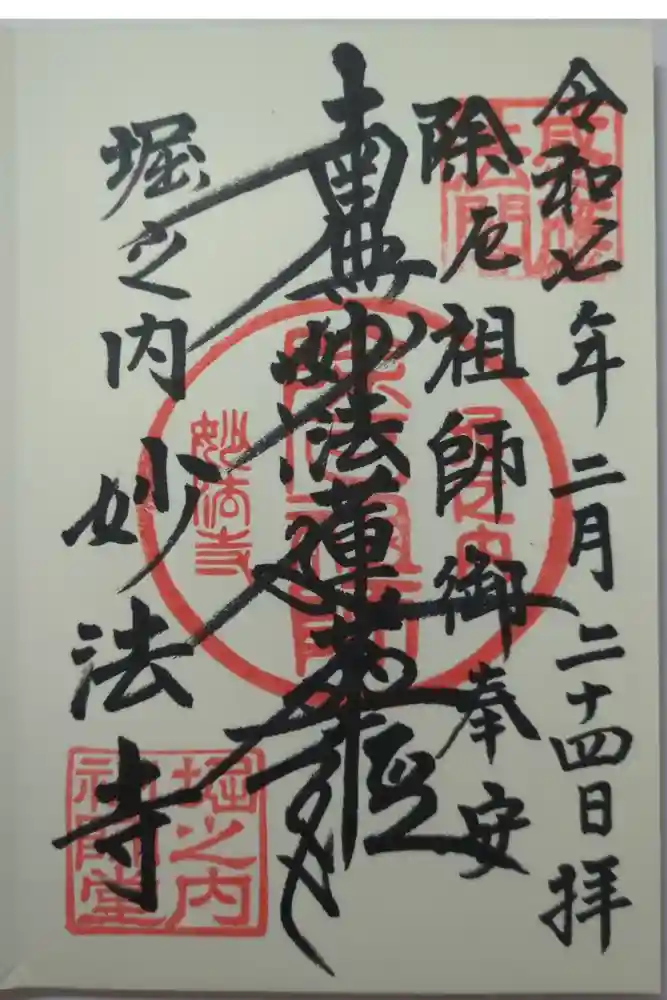 令和七年二月二十四日拝
除厄祖師御奉安
南無妙法蓮華経
堀之内妙法寺
除厄祖師
妙法寺
堀之内
祖師堂